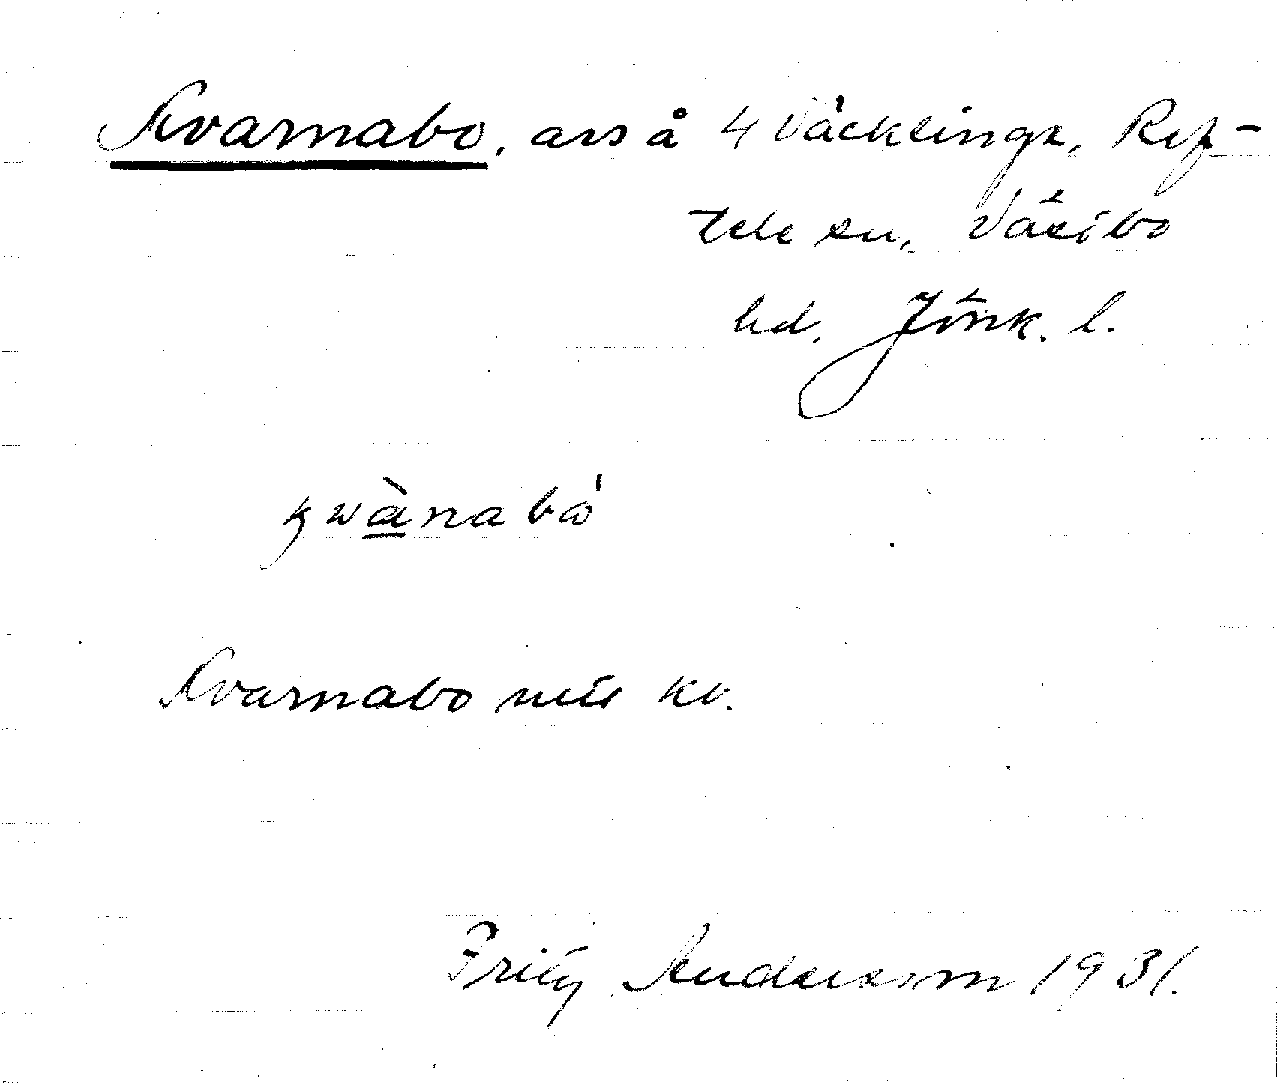 Kvarnabo, avs å 4 Väcklinge, Ref-
tele sn, Västbo
hd. Jönk. l.
kwànabó
Kvarnabo mís kv.
Fritz Andersson 1931.